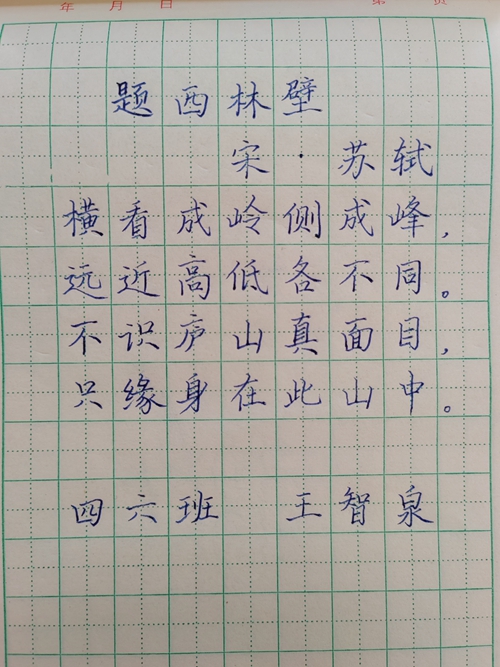 年 月 日 第 页
题西林壁
宋·苏轼
横看成岭侧成峰，
远近高低各不同。
不识庐山真面目，
只缘身在此山中。
四六班 王智泉